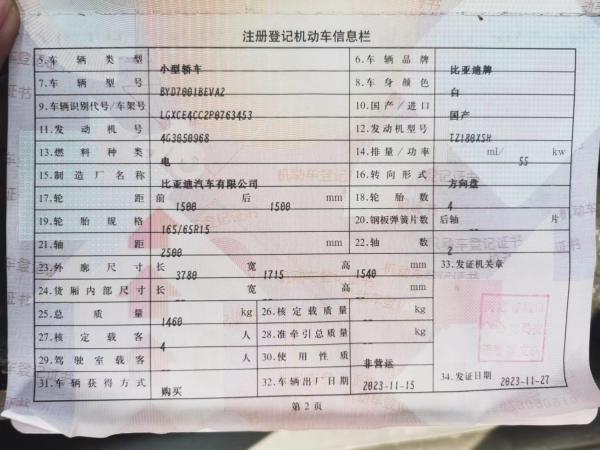 注册登记机动车信息栏
5.车辆类型 小型轿车 6.车辆品牌 比亚迪牌
7.车辆型号 BYD7001BEVA2 8.车身颜色 白
9.车辆识别代号/车架号 LGXCE4CC2P0763453 10.国产/进口 国产
11.发动机号 4G3050968 12.发动机型号 TZ180XSH
13.燃料种类 电 14.排量/功率 ml/ 55 kw
15.制造厂名称 比亚迪汽车有限公司 16.转向形式 方向盘
17.轮距 前 1500 后 1500 mm 18.轮胎数 4
19.轮胎规格 165/65R15 20.钢板弹簧片数 后轴 -- 片
21.轴距 2500 mm 22.轴数 2
23.外廓尺寸 长 3780 宽 1715 高 1540 mm 33.发证机关章
24.货厢内部尺寸 长 -- 宽 -- 高 -- mm
25.总质量 1460 kg 26.核定载质量 -- kg
27.核定载客 4 人 28.准牵引总质量 -- kg
29.驾驶室载客 -- 人 30.使用性质 非营运
31.车辆获得方式 购买 32.车辆出厂日期 2023-11-15 34.发证日期 2023-11-27
第2页